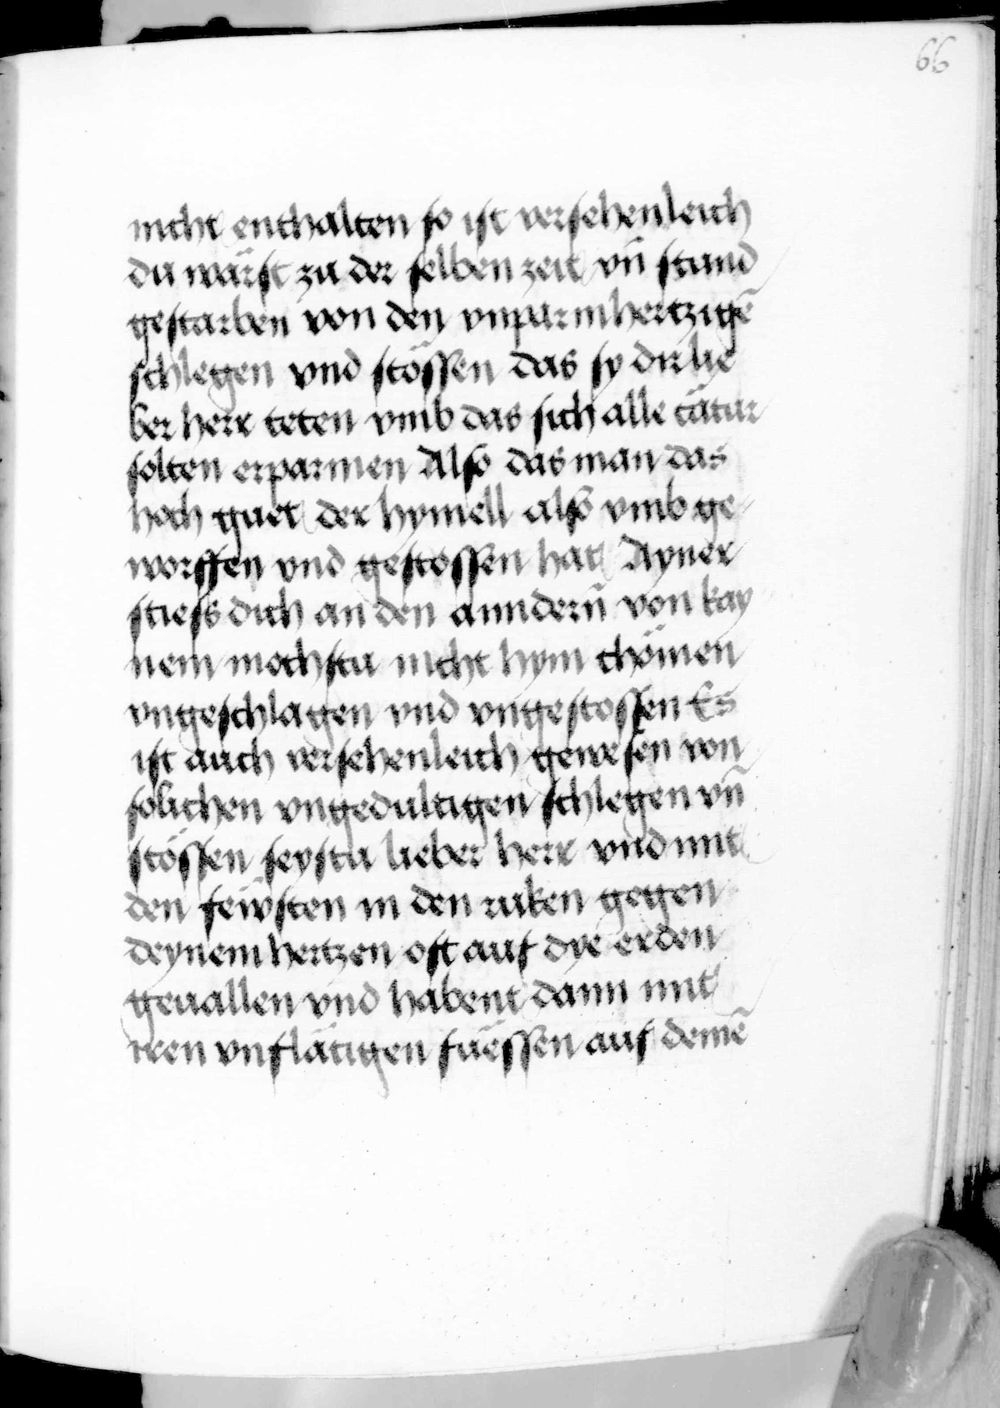 66
nicht enthalten so ist versehenleich
du wärst zu der selben zeit vn̄ stund
gestarben von den vnparmhertzigē
schlegen vnd stössen das sy dir lie
ber herr teten vmb das sich alle
solten erparmen Also das man das
hoch guet der hymell also vmb ge
worffen vnd gestossen hat Ayner
stiess dich an den anndern̄ von kay
nem mochstu nicht hym chömen
vngeschlagen vnd vngestossen Es
ist auch versehenleich gewesen von
solichen vngedultigen schlegen vn̄
stössen seystu lieber herr vnd mit
den fewsten in den ruken gegen
deynem hertzen oft auf dye erden
geuallen vnd habent dann mit
iren vnflätigen füessen auf deinē